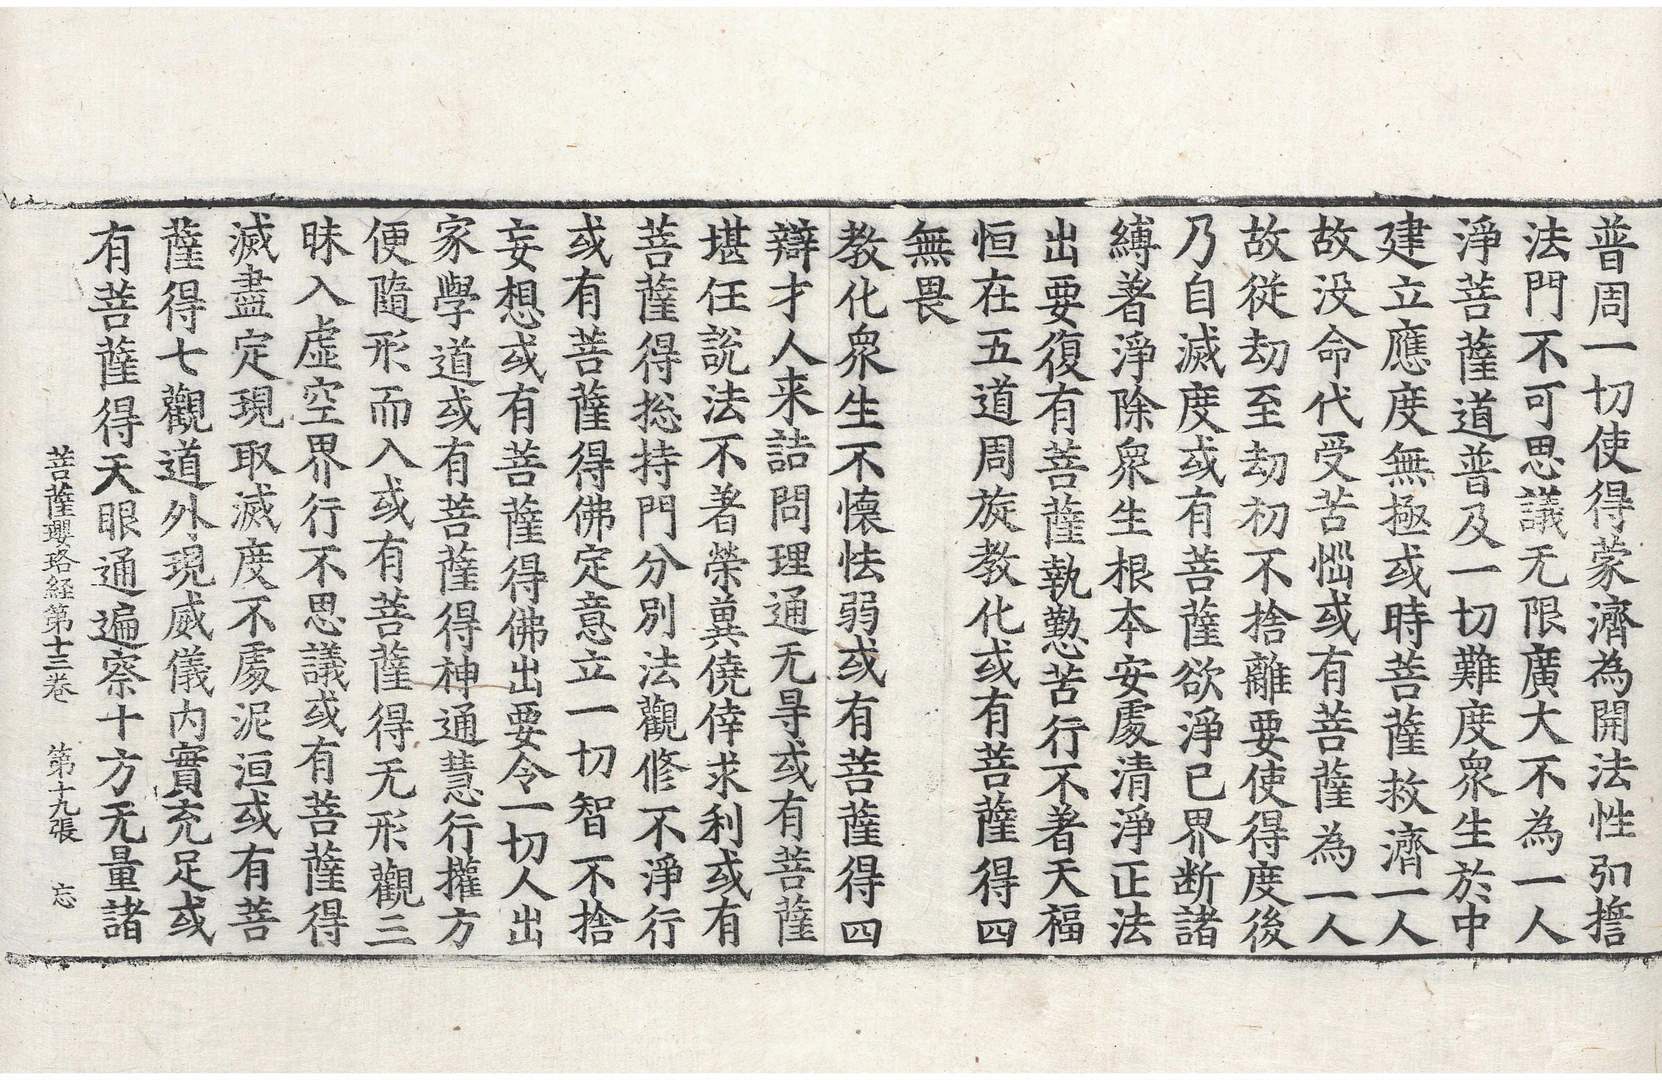 普周一切使得蒙濟為開法性弘擔
法門不可思議无限廣大不為一人
淨菩薩道普及一切難度衆生於中
建立應度無極或時菩薩救濟一人
故没命代受苦惱或有菩薩為一人
故從劫至劫初不捨離要使得度後
乃自滅度或有菩薩欲淨已界断諸
縛著淨除衆生根本安處清淨正法
出要復有菩薩執懃苦行不著天福
恒在五道周旋教化或有菩薩得四
無畏
教化衆生不懷怯弱或有菩薩得四
辯才人来詰問理通无㝵或有菩薩
堪任說法不著榮兾僥倖求利或有
菩薩得捴持門分別法觀修不淨行
或有菩薩得佛定意立一切智不捨
妄想或有菩薩得佛出要令一切人出
家學道或有菩薩得神通慧行攉方
便隨形而入或有菩薩得无形觀三
昧入虛空界行不思議或有菩薩得
滅盡定現取滅度不處泥洹或有菩
薩得七觀道外現威儀内實充足或
有菩薩得天眼通遍察十方无量諸
菩薩瓔珞経第十三卷 第十九張 忘